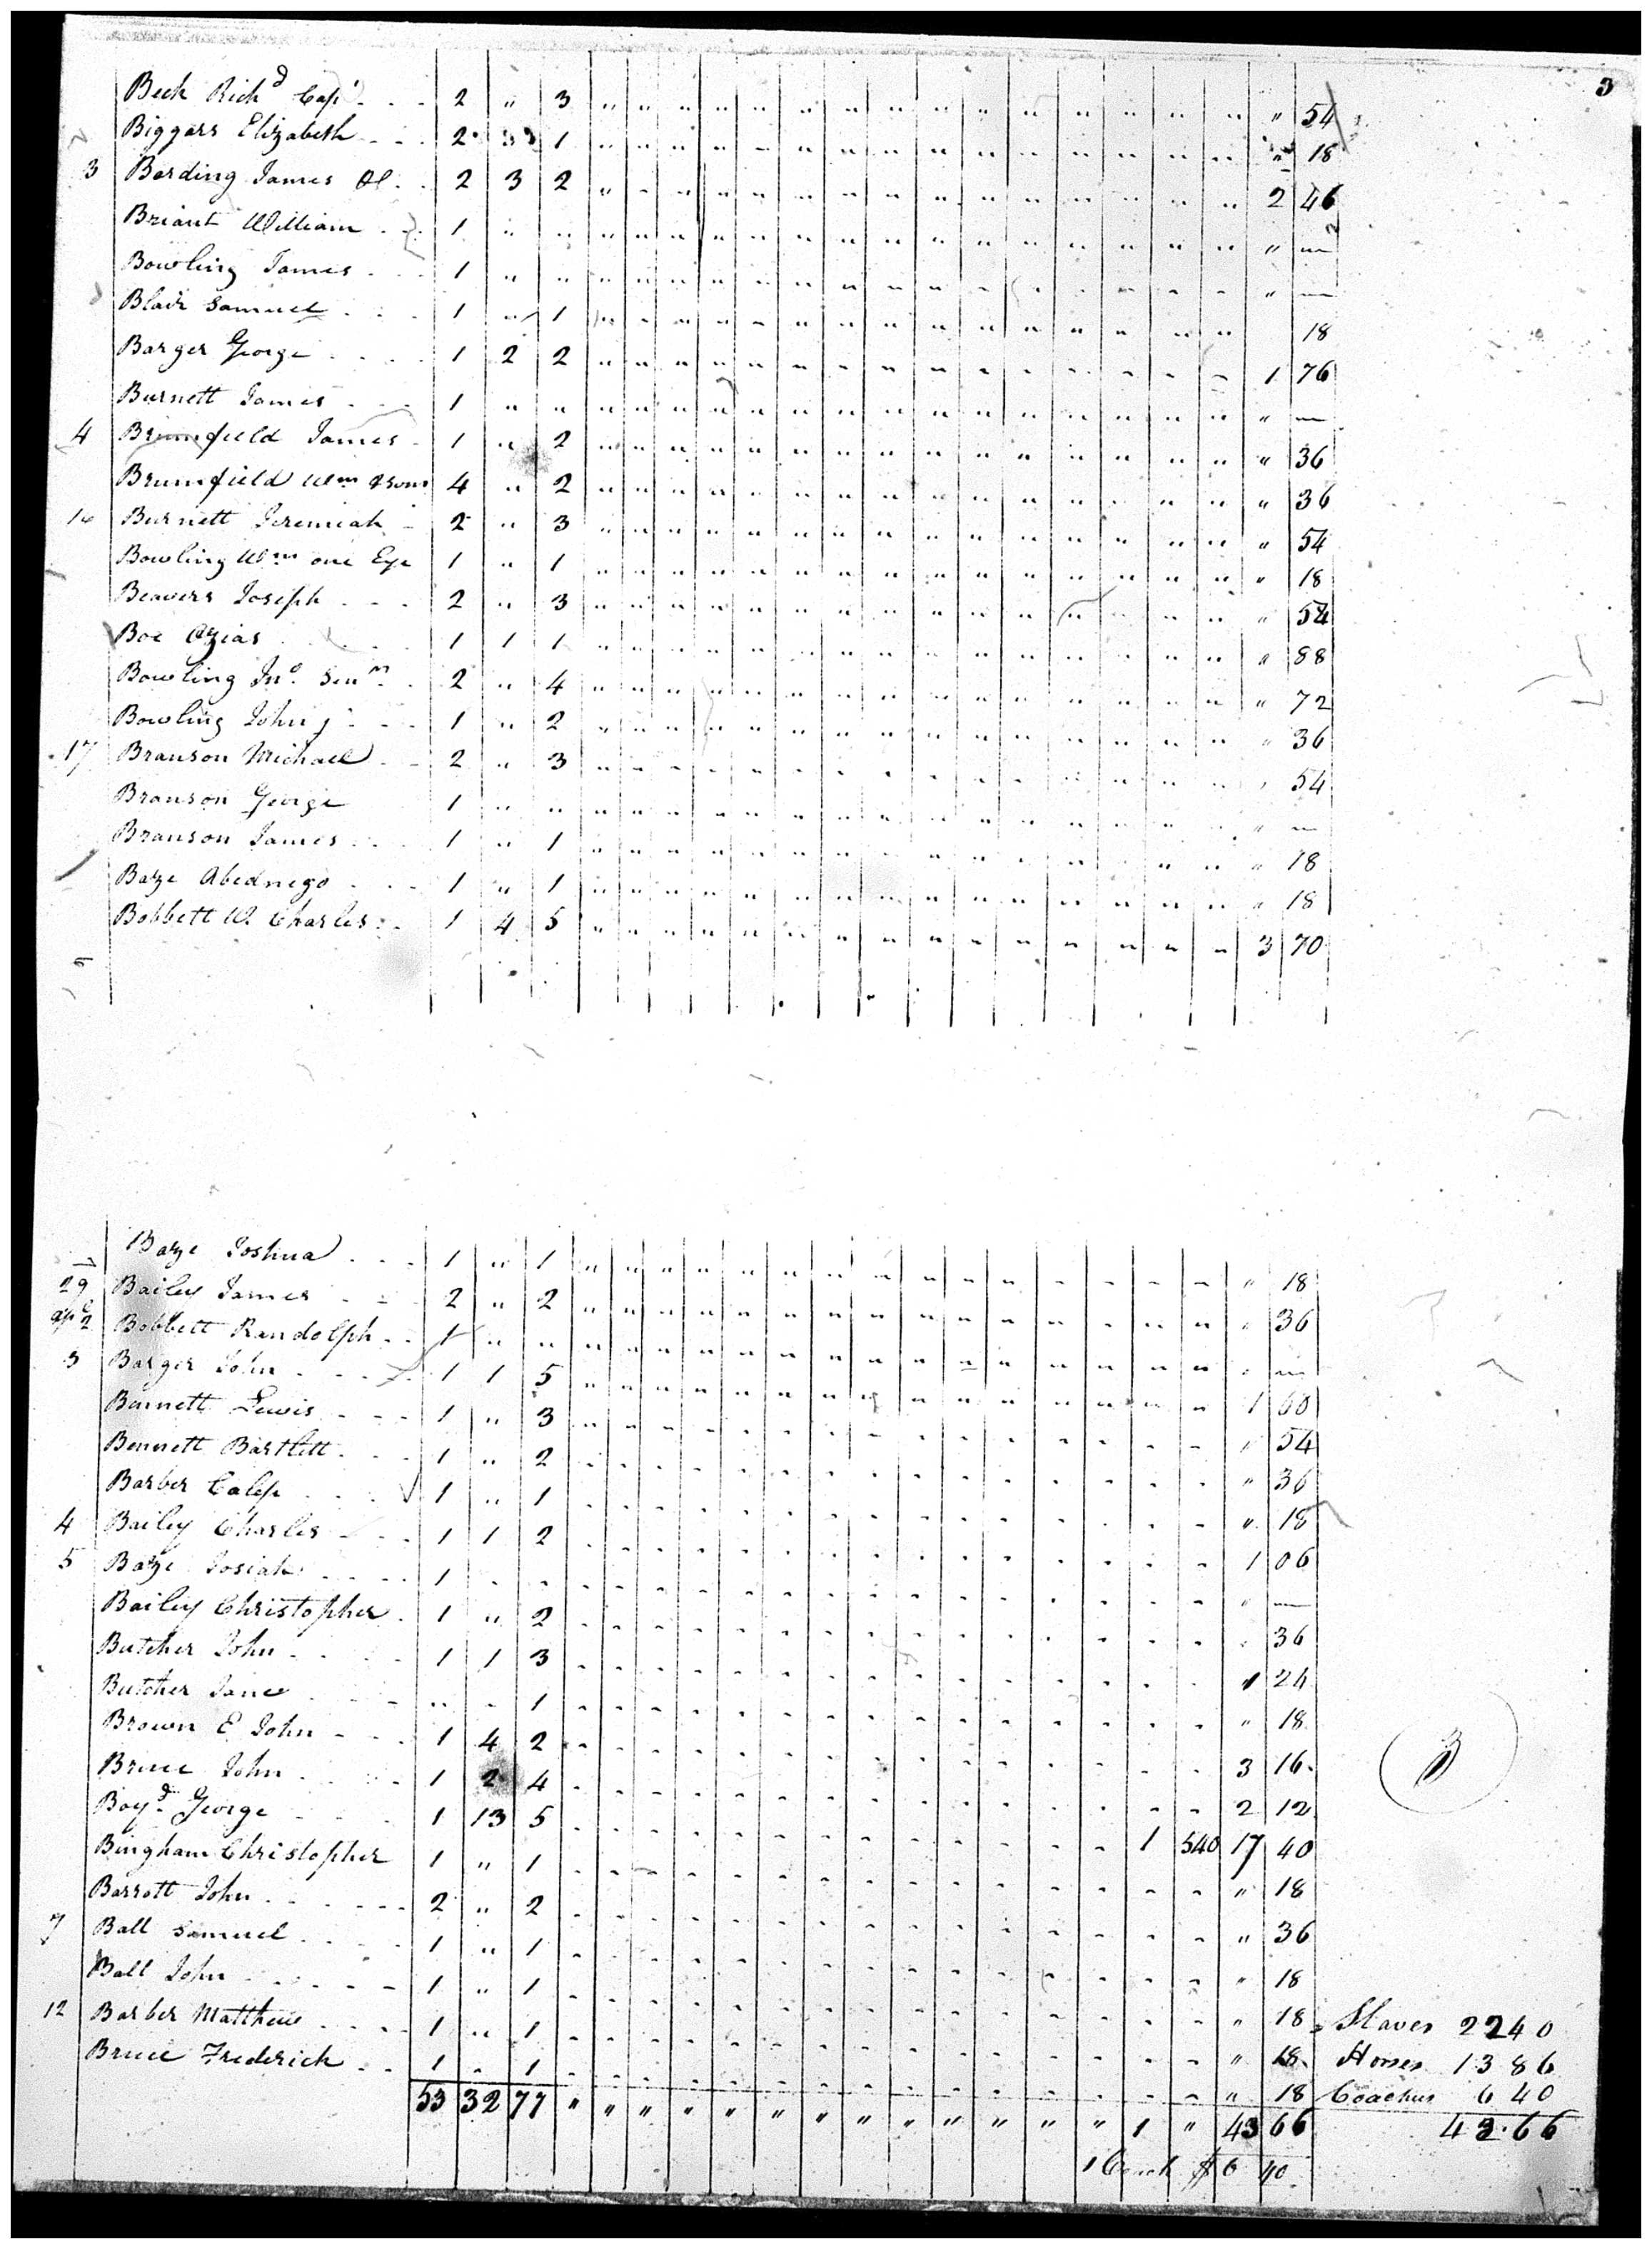 3
Beck Rich^d Cap^t 2 " 3 " 54
Biggars Elizabeth 2 " 1 " 18
3 Berding James 2 3 2 2 46
Briant William 1 " " " —
Bowling James 1 " " " —
Blair Samuel 1 " 1 18
Barger George 1 2 2 1 76
Burnett James 1 " " " —
4 Brumfield James 1 " 2 " 36
Brumfield Wm & sons 4 " 2 " 36
Burnett Jeremiah 2 " 3 " 54
Bowling Wm one Eye 1 " 1 " 18
Beavers Joseph 2 " 3 " 54
Boe Ozias 1 1 1 " 88
Bowling Jno. Senr. 2 " 4 " 72
Bowling John j 1 " 2 " 36
17 Branson Michael 2 " 3 " 54
Branson George 1 " " " —
Branson James 1 " 1 " 18
Baze Abednego 1 " 1 " 18
Bobbett W. Charles 1 4 5 3 70
Baze Joshua 1 " 1 " 18
29 Bailey James 2 " 2 " 36
apl 2 Bobbett Randolph 1 " " " —
3 Barger John 1 1 5 1 60
Burnett Lewis 1 " 3 " 54
Bennett Bartlett 1 " 2 " 36
Barber Calep 1 " 1 " 18
4 Bailey Charles 1 1 2 1 06
5 Baze Josiah 1 - - " —
Bailey Christopher 1 " 2 " 36
Butcher John 1 1 3 1 24
Butcher Jane " - 1 " 18
Brown E John 1 4 2 3 16
Bruce John 1 2 4 2 12
Boyd George 1 13 5 1 540 17 40
Bingham Christopher 1 " 1 " 18
Barrott John 2 " 2 " 36
7 Ball Samuel 1 " 1 " 18
Ball John 1 " 1 " 18
12 Barber Matthew 1 " 1 " 18
Bruce Frederick 1 - 1 " 18
Slaves 2240
Horses 1386
Coaches 640
53 32 77 " " " " " " " " " " " " " 1 " 43 66
42.66
1 $6 40